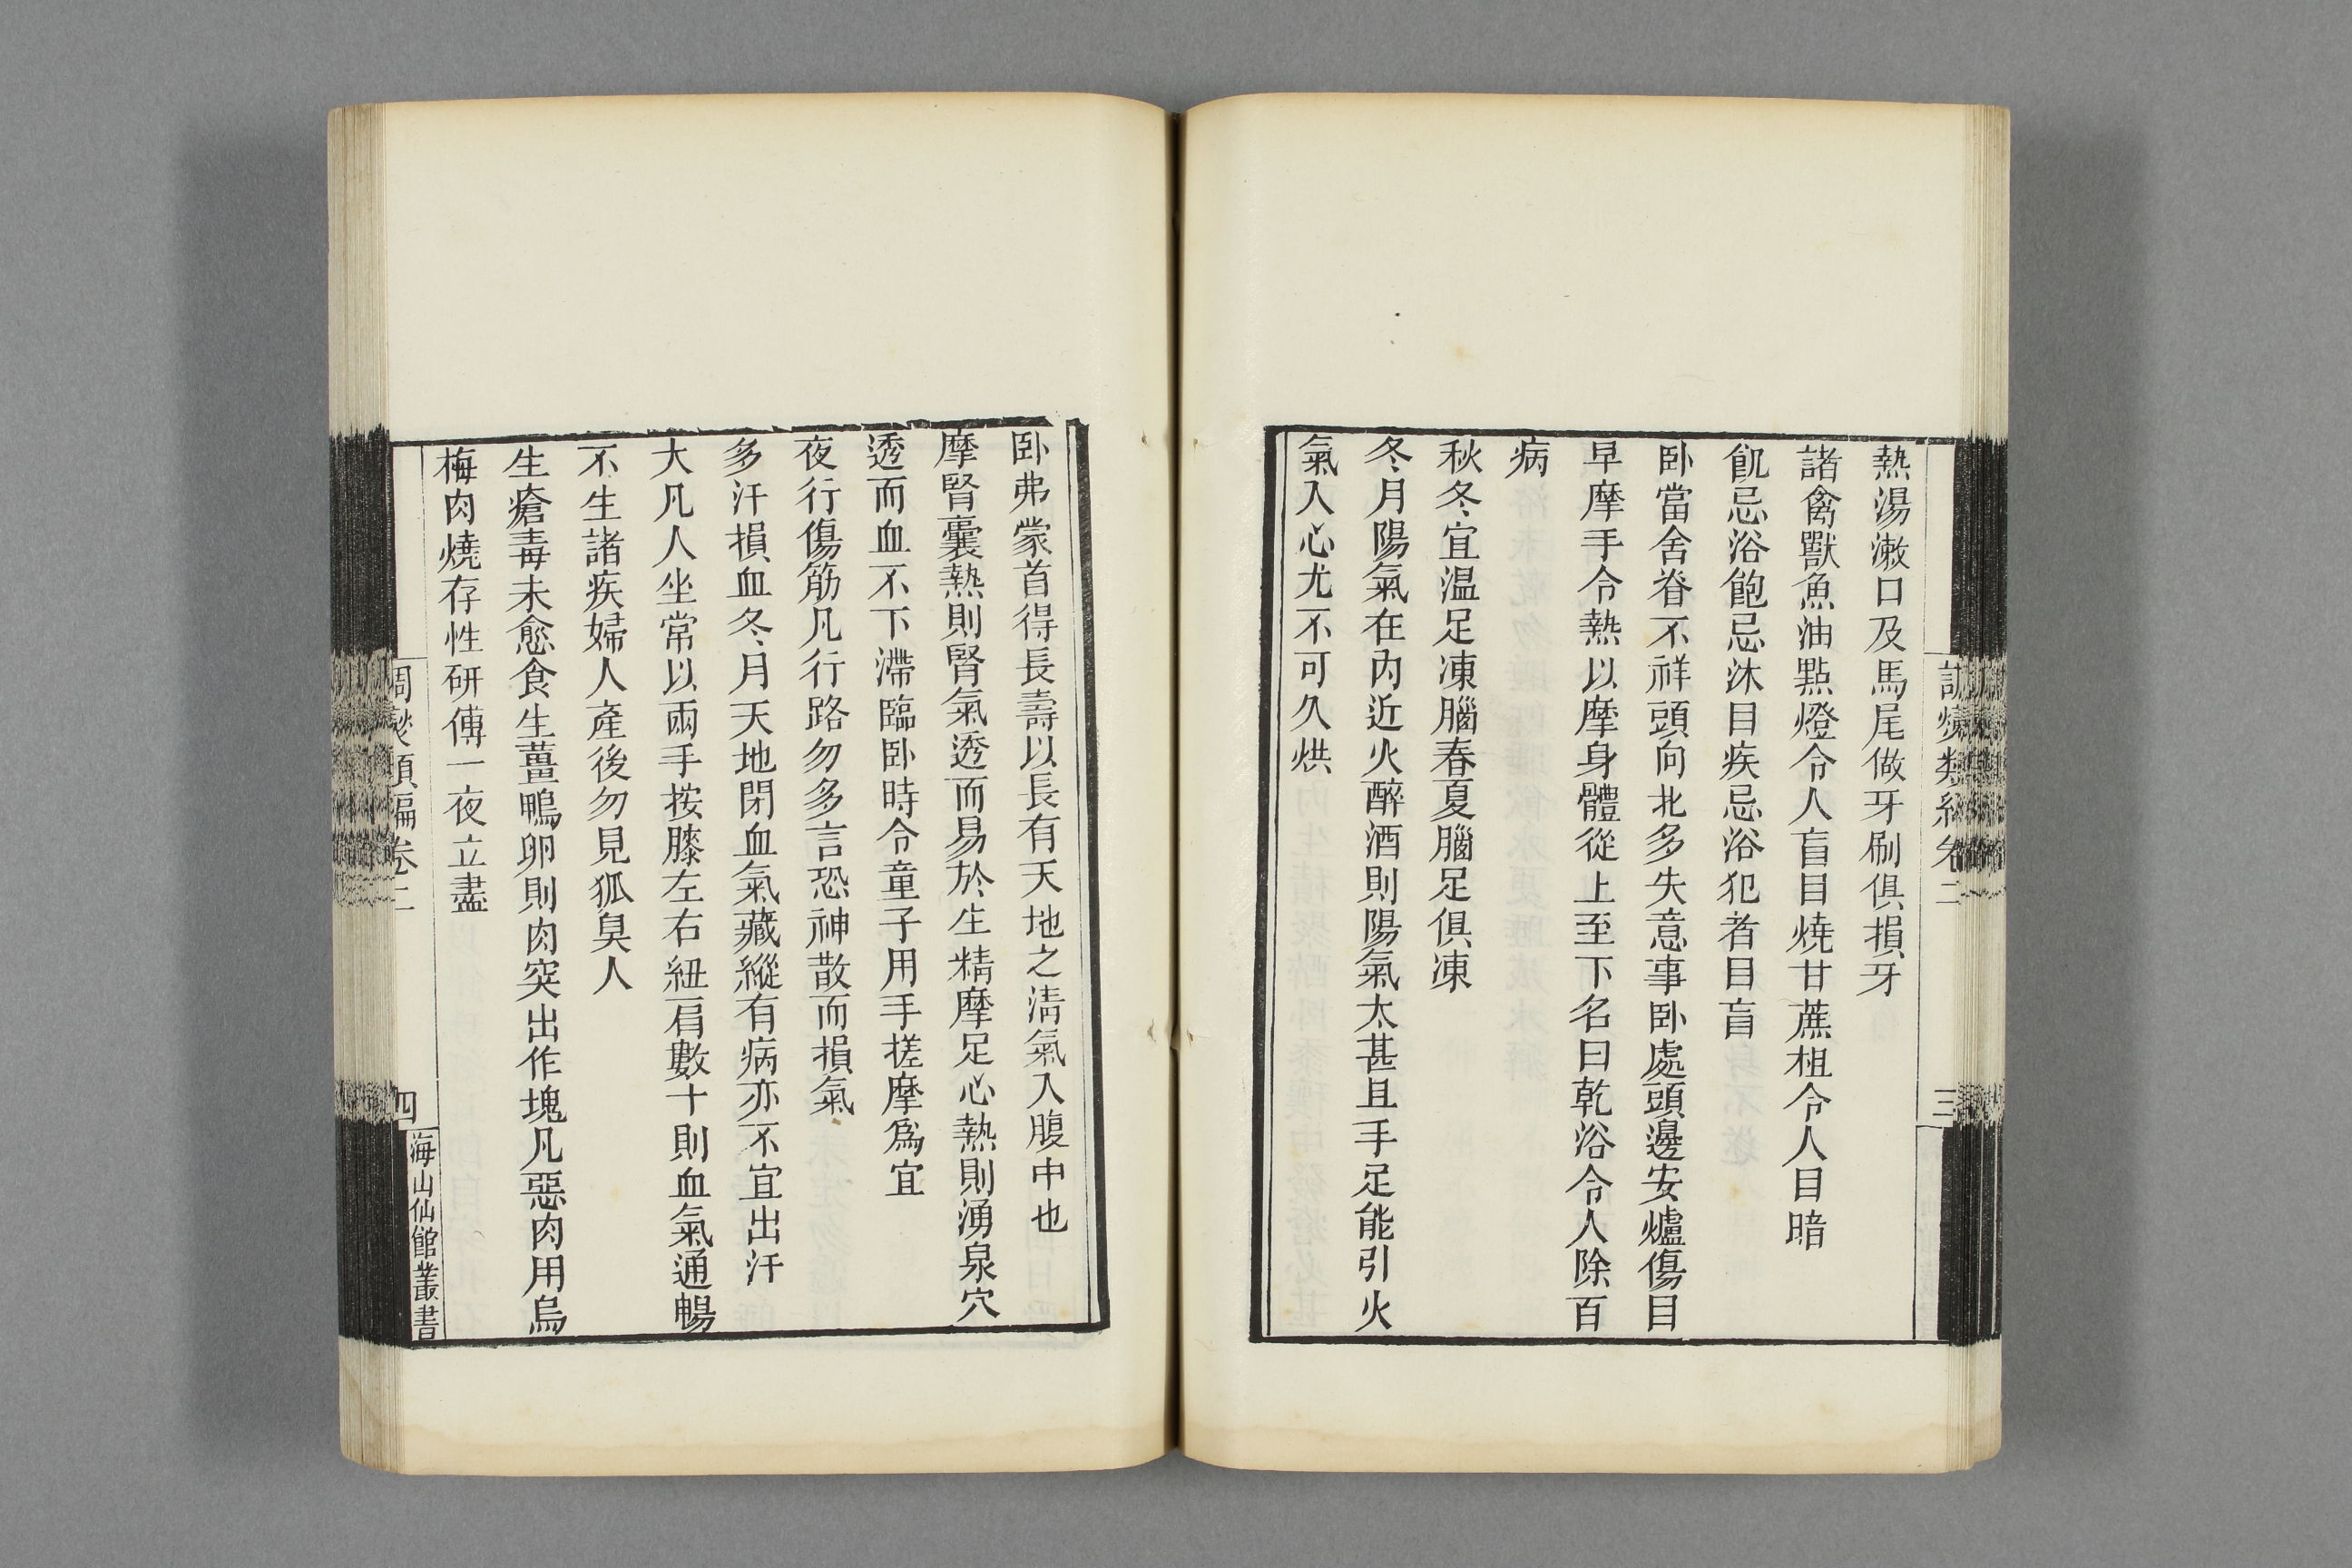 熱湯漱口及馬尾做牙刷俱損牙
諸禽獸魚油㸃燈令人盲目燒甘蔗柤令人目暗
飢忌浴飽忌沐目疾忌浴犯者目盲
卧當舍脊不祥頭向北多失意事卧處頭邊安爐傷目
早摩手令熱以摩身體從上至下名曰乾浴令人除百
病
秋冬宜温足凍腦春夏腦足俱凍
冬月陽氣在內近火醉酒則陽氣太甚且手足能引火
氣入心尤不可久烘
卧弗蒙首得長壽以長有天地之淸氣入腹中也
摩腎囊熱則腎氣透而易於生精摩足心熱則湧泉穴
透而血不下滯臨卧時令童子用手搓摩爲宜
夜行傷筋凡行路勿多言恐神散而損氣
多汗損血冬月天地閉血氣藏縱有病亦不宜出汗
大凡人坐常以兩手按膝左右紐肩數十則血氣通暢
不生諸疾婦人產後勿見狐臭人
生瘡毒未愈食生薑鴨卵則肉突出作塊凡惡肉用烏
梅肉燒存性研傅一夜立盡
調燮類編卷二
四
海山仙館叢書